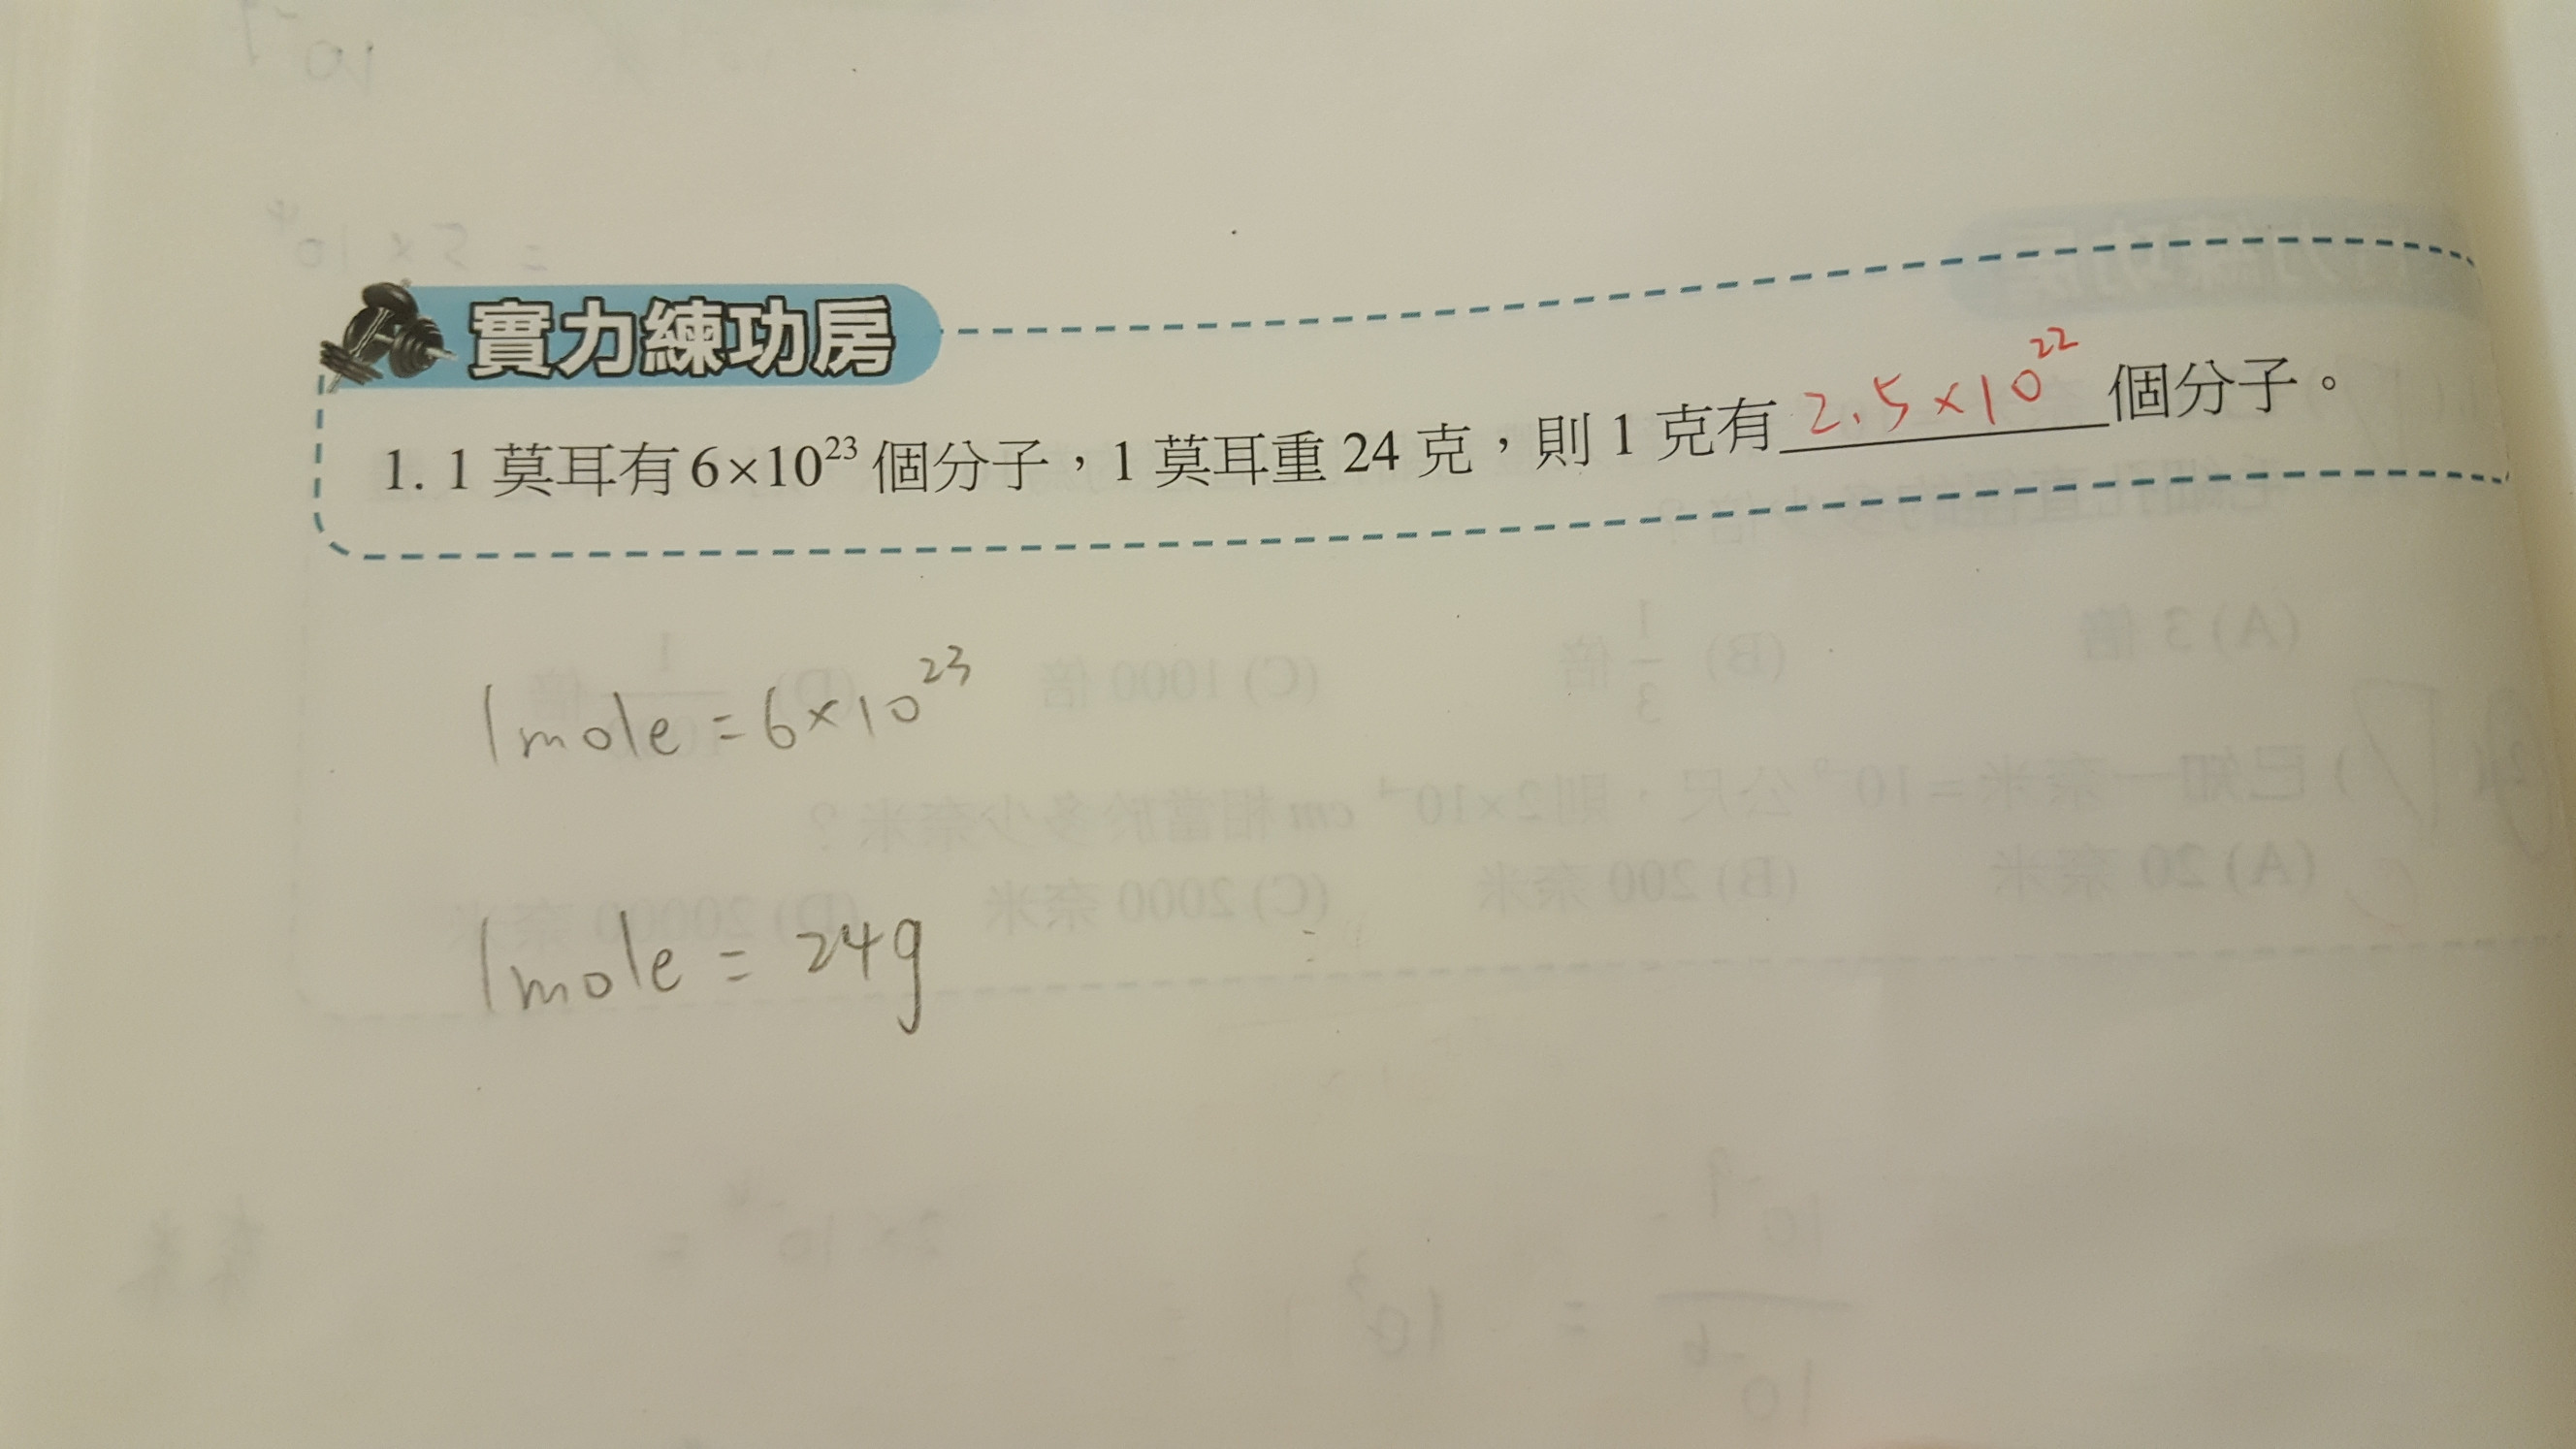 實力練功房
1. 1 莫耳有 6×10²³ 個分子，1 莫耳重 24 克，則 1 克有 2.5×10²² 個分子。
1 mole = 6×10²³
1 mole = 24g